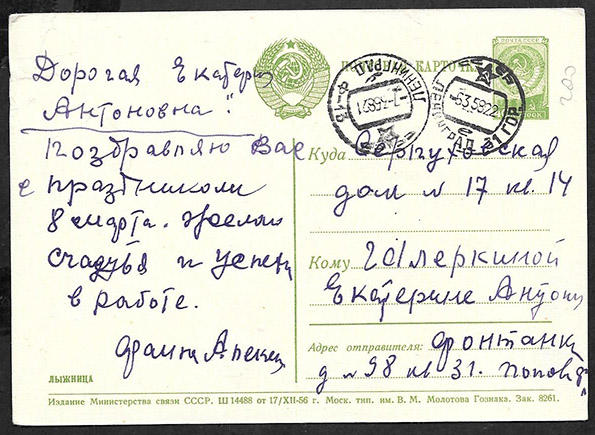 Дорогая Екатери
Антоновна!
Поздравляю Вас
с праздником
8 марта. Желаю
счастья и успеха
в работе.
ЛЫЖНИЦА
ПОЧТОВАЯ КАРТОЧКА
ПОЧТА СССР
ЛЕНИНГРАД
ЛЕНИНГРАД
Куда Серпуховская
дом N 17 кв. 14
Кому
Екатерине Антон
Адрес отправителя: Фонтанка
д N 98 кв 31.
Издание Министерства связи СССР. Ш 14488 от 17/XII-56 г. Моск. тип. им. В. М. Молотова Гознака. Зак. 8261.
200